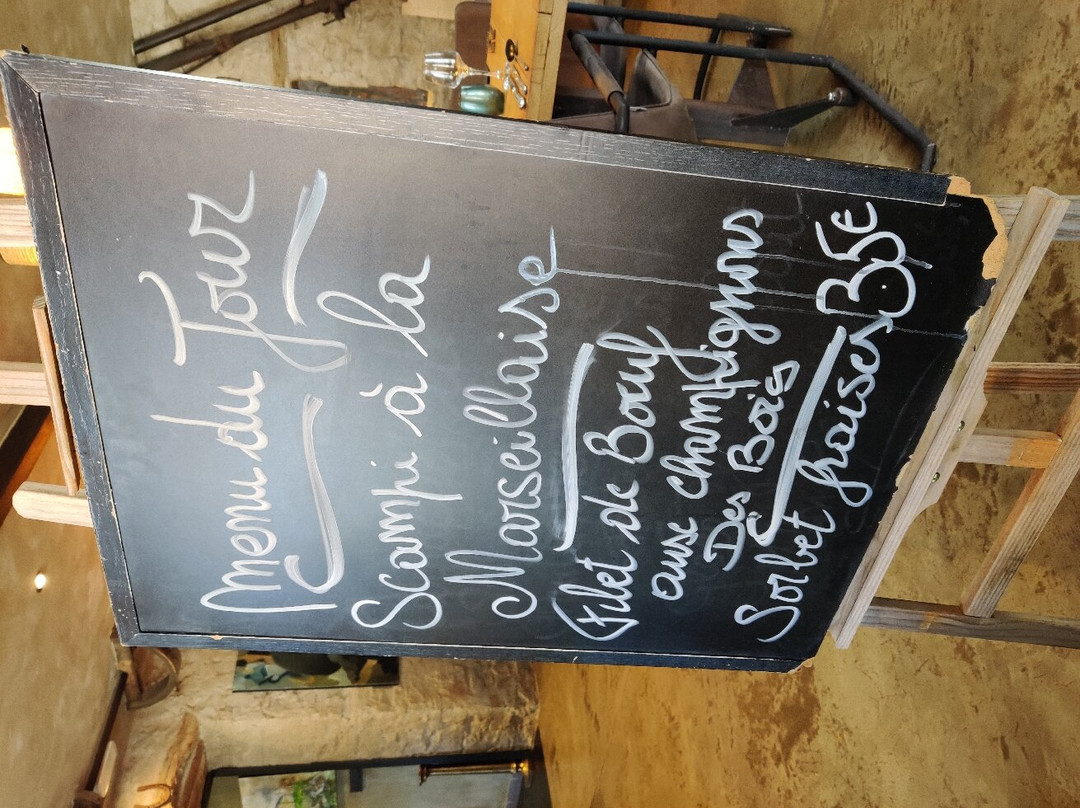 Menu du Jour
Scampi à la
Marseillaise
Filet de Bœuf
aux champignons
Des Bois
Sorbet fraises 35€